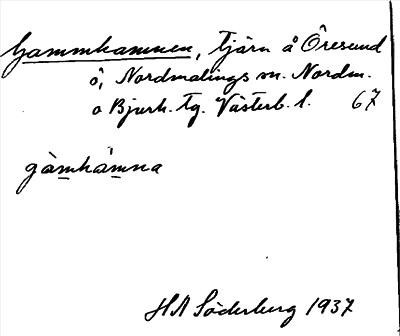 Gammhamnen, tjärn å Öresund
ö, Nordmalings sn. Nordm.
o Bjurh. tg. Västerb. l. 67
gàmhàmna
HA Söderberg 1937